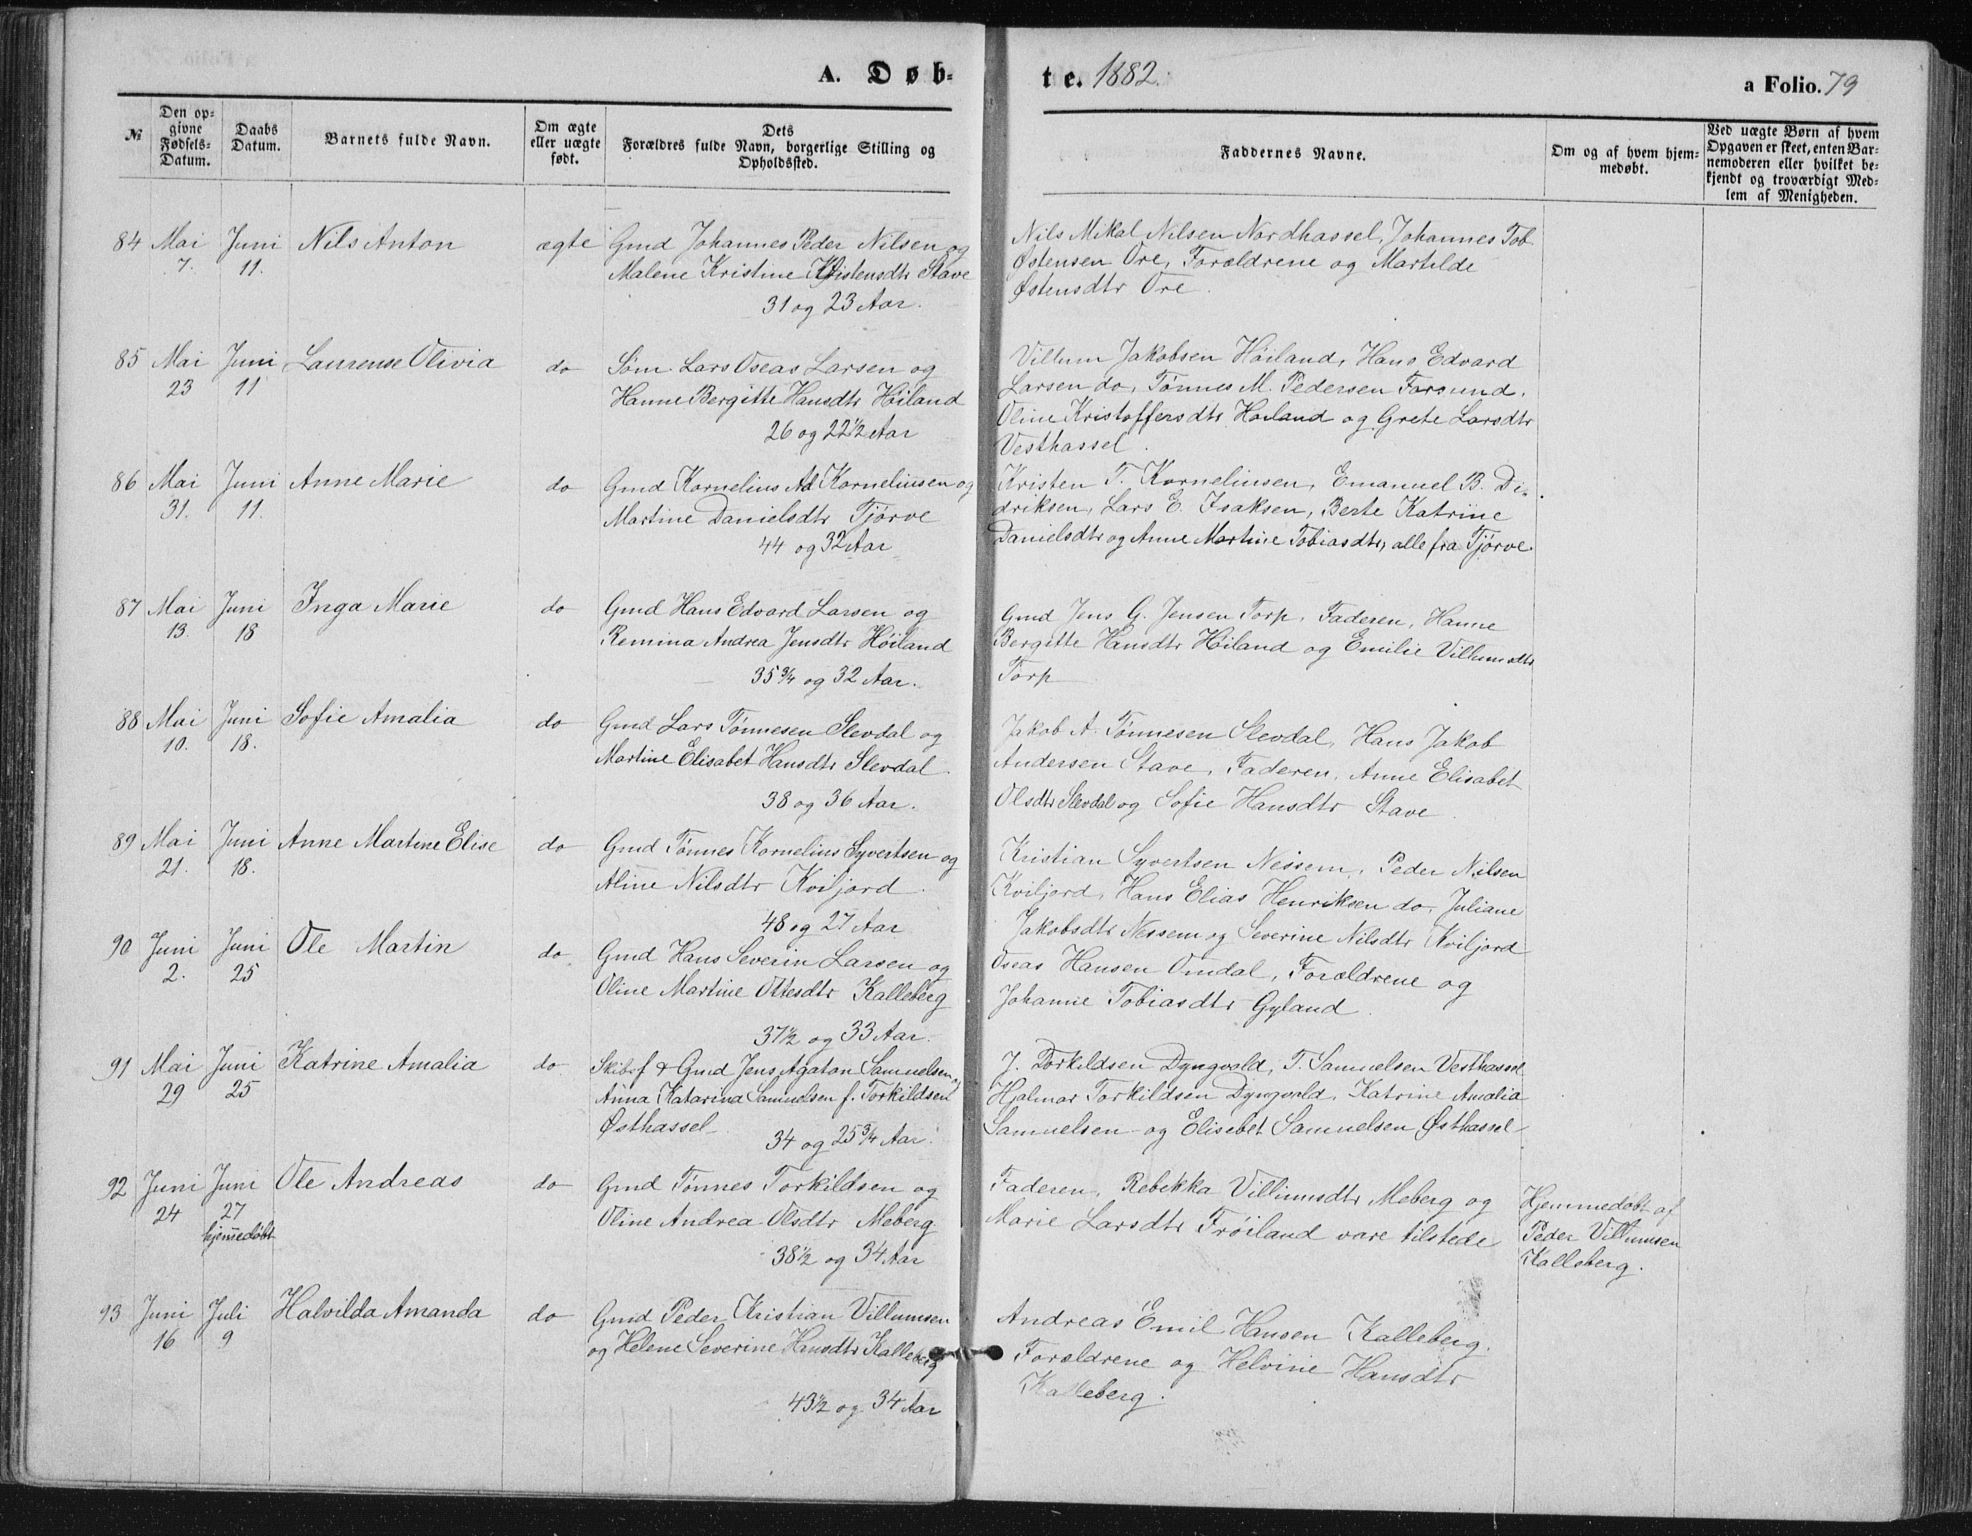 A. Døb-
te. 1882.
a Folio. 79
№
Den op-
givne
Fødsels-
Datum.
Daabs
Datum.
Barnets fulde Navn.
Om ægte
eller uægte
født.
Dets
Forældres fulde Navn, borgerlige Stilling og
Opholdssted.
Faddernes Navne.
Om og af hvem hjem-
medøbt.
Ved uægte Børn af hvem
Opgaven er skeet, enten Bar-
nemoderen eller hvilket be-
kjendt og troværdigt Med-
lem af Menigheden.
84 Mai Juni Nils Anton ægte Gmd Johannes Peder Nilsen og
7. 11. Malene Kristine Kristensdtr Stave
31 og 23 Aar.
Nils Mikal Nilsen Nordhassel, Johannes Tob.
Østensen Ore, Forældrene og Martilde
Østensdtr Ore.
85 Mai Juni Laurense Olivia do Søm. Lars Oseas Larsen og
23 11 Hanne Bergitte Hansdtr Høiland
26 og 22 1/2 Aar
Villum Jakobsen Høiland, Hans Edvard
Larsen do, Tønnes M. Pedersen Farsund,
Oline Kristoffersdtr Høiland og Grete Larsdtr
Vesthassel.
86 Mai Juni Anne Marie do Gmd Kornelius Ad Korneliusen og
31. 11. Martine Danielsdtr Tjørve
44 og 32 Aar
Kristen T. Korneliusen, Emanuel B. Di-
driksen, Lars E. Isaksen, Berte Katrine
Danielsdtr og Anne Martine Tobiasdtr, alle fra Tjørve.
87 Mai Juni Inga Marie do Gmd Hans Edvard Larsen og
13. 18 Remina Andrea Jensdtr Høiland
35 3/4 og 32 Aar.
Gmd Jens G. Jensen Torp, Faderen, Hanne
Bergitte Hansdtr Høiland og Emilie Villumsdtr
Torp
88 Mai Juni Sofie Amalia do Gmd Lars Tønnesen Slevdal og
10. 18. Martine Elisabet Hansdtr Slevdal.
38 og 36 Aar.
Jakob A. Tønnesen Slevdal, Hans Jakob
Andersen Stave, Faderen, Anne Elisabet
Olsdtr Slevdal og Sofie Hansdtr Stave.
89 Mai Juni Anne Martine Elise do Gmd Tønnes Kornelius Syvertsen og
21. 18. Aline Nilsdtr Kviljord.
48 og 27 Aar
Kristian Syvertsen Nessem, Peder Nilsen
Kviljord, Hans Elias Henriksen do, Juliane
Jakobsdtr Nessem og Severine Nilsdtr Kviljord
90 Juni Juni Ole Martin do Gmd Hans Severin Larsen og
2. 25 Oline Martine Ottesdtr Kalleberg
37 1/2 og 33 Aar.
Oseas Hansen Omdal, Forældrene og
Johanne Tobiasdtr Gyland.
91 Mai Juni Katrine Amalia do Skibsf & Gmd Jens Agaton Samuelsen og
29 25 Anna Katarina Samuelsen f. Torkildsen
Østhassel 34 og 25 3/4 Aar.
J. Torkildsen Dyngvold, T. Samuelsen Vesthassel
Hjalmar Torkildsen Dyngvold, Katrine Amalia
Samuelsen og Elisebet Samuelsen Østhassel
92 Juni Juni Ole Andreas do Gmd Tønnes Torkildsen og
24 27 Oline Andrea Olsdtr Meberg
hjemedøbt
38 1/2 og 34 Aar
Faderen, Rebekka Villumsdtr Meberg og
Marie Larsdtr Frøiland vare tilstede
Hjemmedøbt af
Peder Villumsen
Kalleberg.
93 Juni Juli Halvilda Amanda do Gmd Peder Kristian Villumsen
16 9 og Helene Severine Hansdtr Kalleberg
43 1/2 og 34 Aar
Andreas Emil Hansen Kalleberg.
Forældrene og Helvine Hansdtr
Kalleberg.